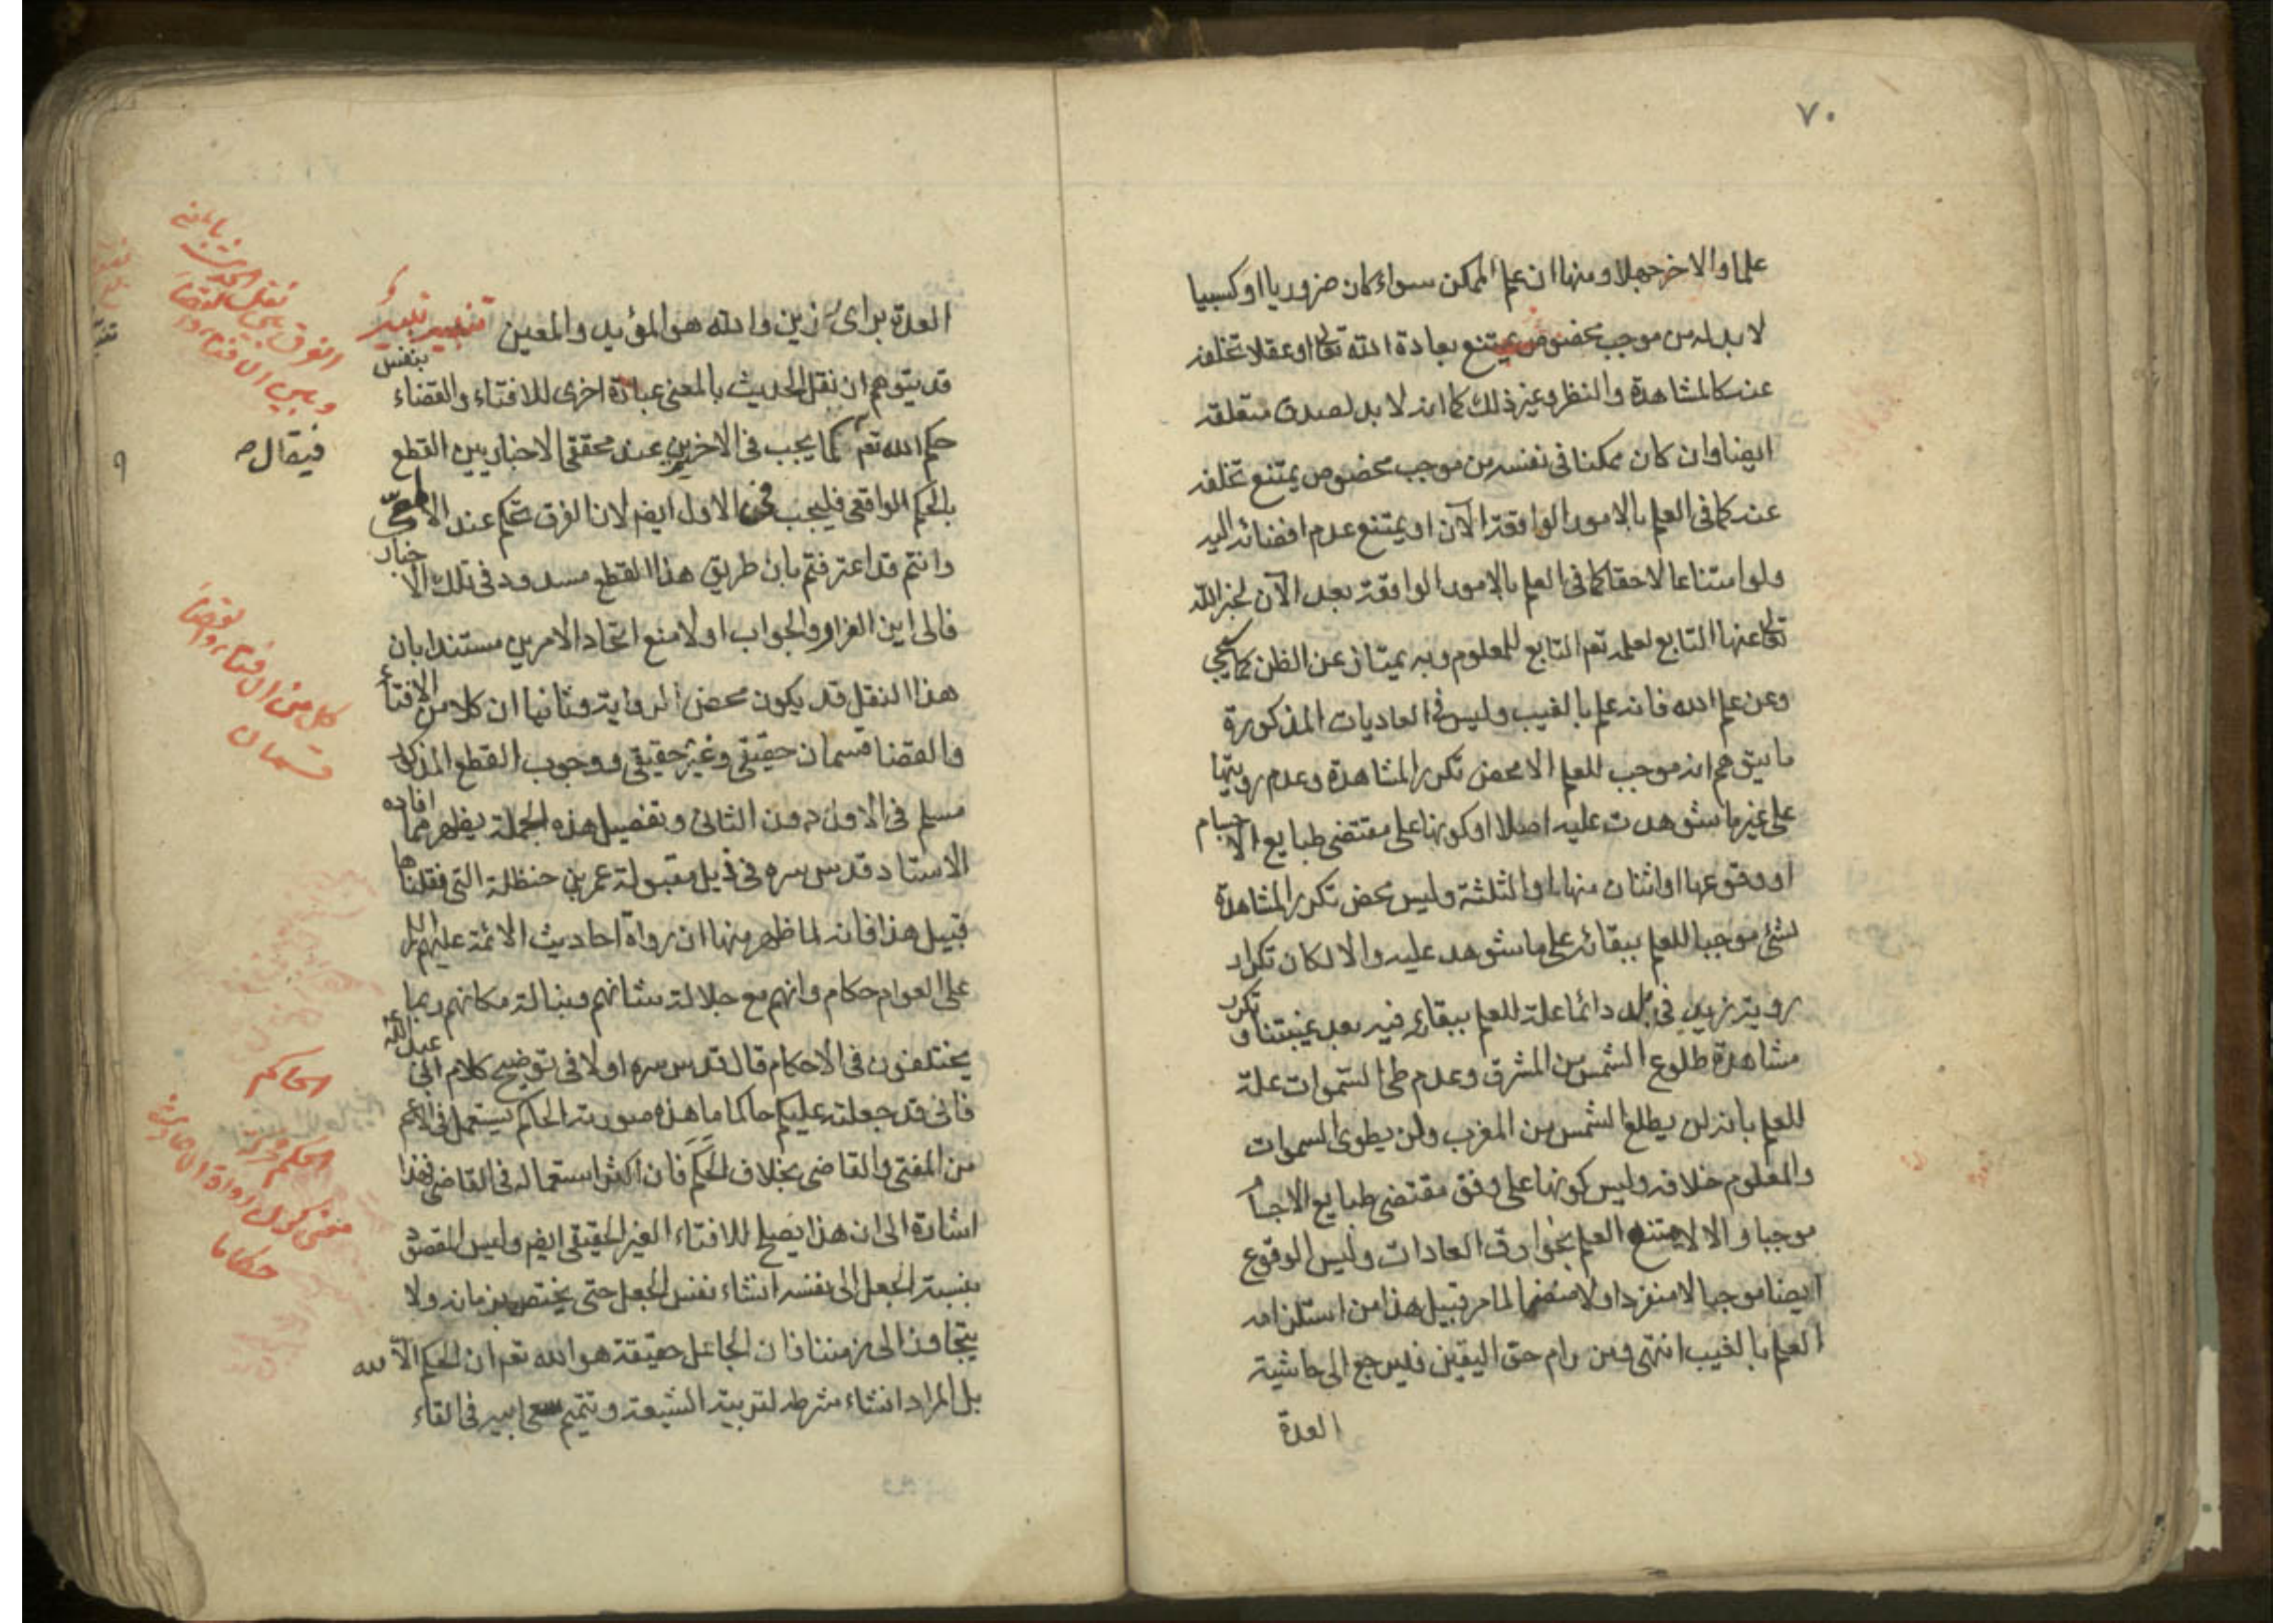 ٧٠
علما والاخر جهلا ومنها ان علم الممكن سواء كان ضروريا او كسبيا
لا بد له من موجب مخصوص يمتنع بعادة الله تعالى او عقلا تخلفه
عنه كالمشاهدة والنظر وغير ذلك كما انه لا بد لصدق متعلقه
ايضا وان كان ممكنا فى نفسه من موجب مخصوص يمتنع تخلفه
عنه كما فى العلم بالامور الواقعة الآن او يمتنع عدم افضائه اليه
ولو امتناعا لاحقا كما فى العلم بالامور الواقعة بعد الآن لخبر الله
تعالى عنها التابع لعلمه تعم التابع للمعلوم وبه يمتاز عن الظن كما يجئ
وعن علم الله فانه علم بالغيب وليس فى العاديات المذكورة
ما يتوهم انه موجب للعلم الا محض تكرر المشاهدة وعدم رويتها
على غير ما شوهدت عليه اصلا او كونها على مقتضى طبايع الاجسام
او وقوعها او اثنان منها او الثلثة وليس محض تكرر المشاهدة
لشئ موجبا للعلم ببقائه على ما شوهد عليه والا لكان تكرار
روية زيد فى بلد دائما علة للعلم ببقائه فيه بعد غيبتنا وتكرر
مشاهدة طلوع الشمس من المشرق وعدم طى السموات علة
للعلم بانه لن يطلع الشمس من المغرب ولن يطوى السموات
والمعلوم خلافه وليس كونها على وفق مقتضى طبايع الاجسام
موجبا والا لامتنع العلم بخوارق العادات وليس الوقوع
ايضا موجبا لا منفردا ولا منضما لما مر قبيل هذا من استلزامه
العلم بالغيب انتهى ومن رام حق اليقين فليرجع الى حاشية
العدة
العدة براى رزين والله هو المؤيد والمعين تنبيه نبيه
قد يتوهم ان نقل الحديث بالمعنى عبارة اخرى للافتاء والقضاء بنفس
حكم الله تعم فيقال كما يجب فى الاخرين عند محققى الاخباريين القطع
بالحكم الواقعى فليجب فى الاول ايضم لان الفرق تحكم عند الالمعى
وانتم قد اعترفتم بان طريق هذا القطع مسدود فى تلك الاخبار
فالى اين الفرار والجواب اولا منع اتحاد الامرين مستندا بان
هذا النقل قد يكون محض الرواية وثانيا ان كلا من الافتاء
والقضا قسمان حقيقى وغير حقيقى ووجوب القطع المذكور
مسلم فى الاول دون الثانى وتفصيل هذه الجملة يظهر مما افاده
الاستاد قدس سره فى ذيل مقبولة عمر بن حنظلة التى نقلناها
قبيل هذا فانه لما ظهر منها ان رواة احاديث الائمة عليهم السلم
على العوام حكام وانهم مع جلالة شانهم ونبالة مكانهم ربما
يختلفون فى الاحكام قال قدس سره اولا فى توضيح كلام ابى عبد الله
فانى قد جعلته عليكم حاكما ما هذه صورته الحاكم يستعمل فى الاعم
من المفتى والقاضى بخلاف الحكم فان اكثر استعماله فى القاضى فهذا
اشارة الى ان هذا يصلح للافتاء الغير الحقيقى ايضم وليس المقصود
بنسبة الجعل الى نفسه انشاء نفس الجعل حتى يختص بزمانه ولا
يتجاوز الى زمننا فان الجاعل حقيقة هو الله تعم ان الحكم الا لله
بل المراد انشاء شرطه لتربية الشيعة وتتميم سعى ابيه فى القاء
الفرق بين نقل الحديث بالمعنى
وبين الافتاء والقضا
كل من الافتاء والقضا
قسمان
الحاكم
الحكم محركة
معنى كون رواة الاحاديث
حكاما